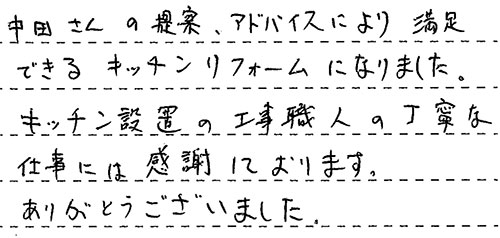 中田さんの提案、アドバイスにより満足
できるキッチンリフォームになりました。
キッチン設置の工事職人の丁寧な
仕事には感謝しております。
ありがとうございました。